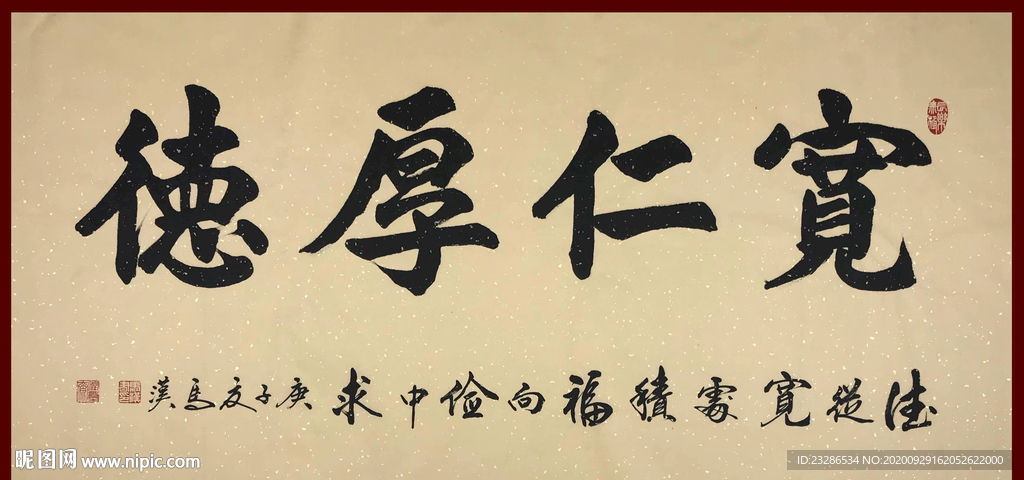 寬仁厚德
德從寬處積福向儉中求 庚子夏馬漢
昵图网 www.nipic.com
ID:23286534 NO:20200929162052622000